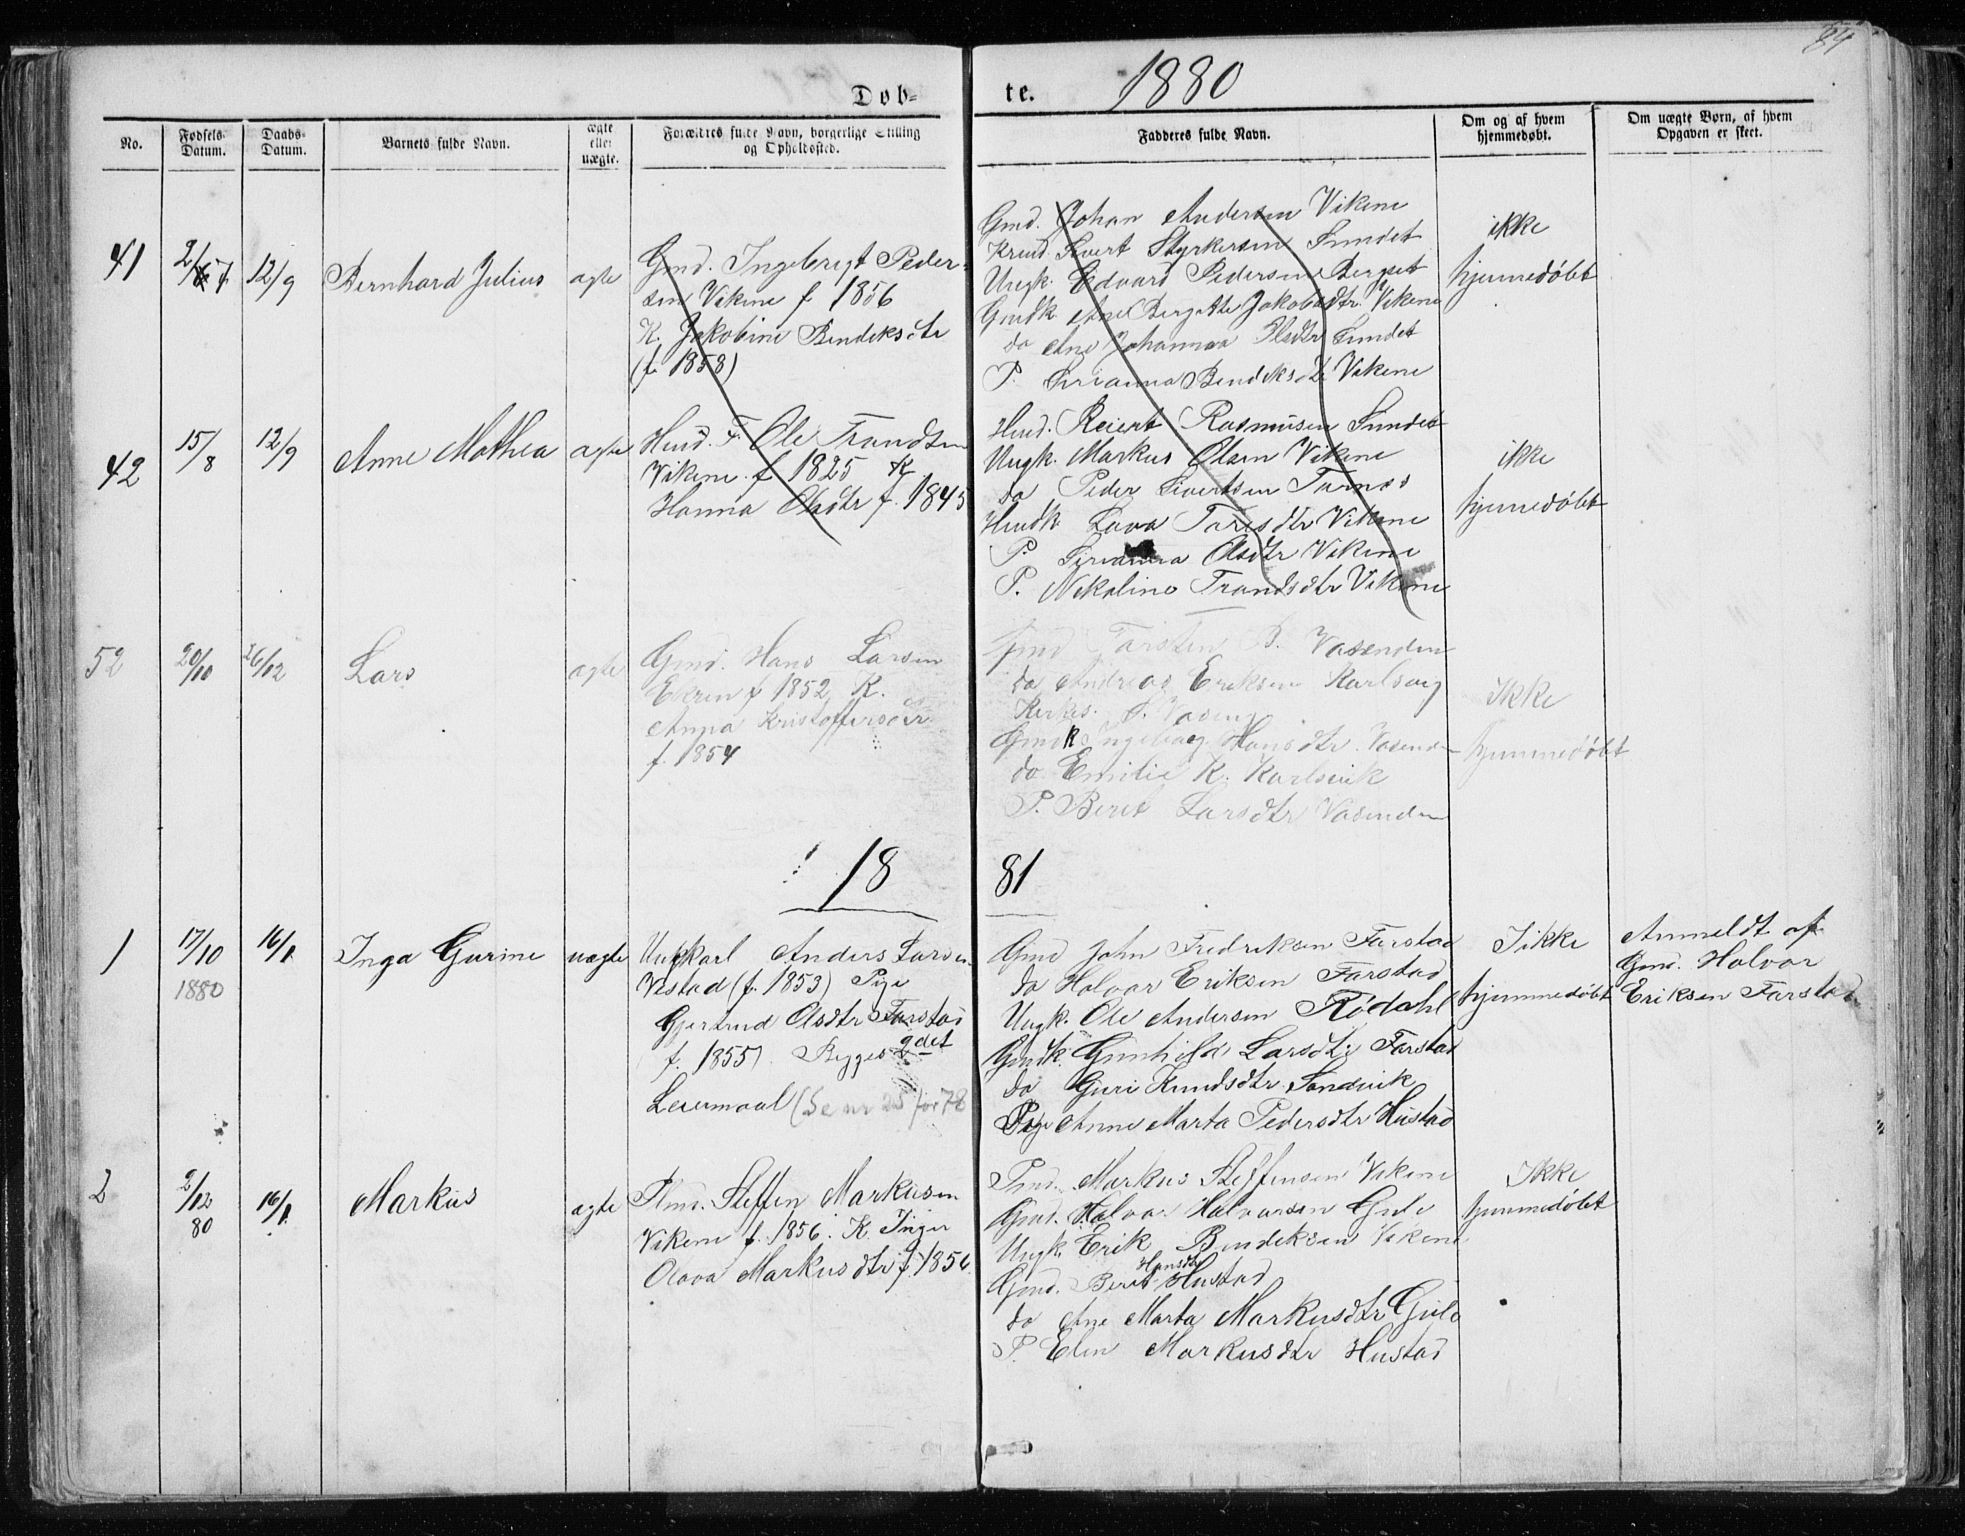 84
Dob-
te.
1880
No.
Fødsels-
Datum.
Daabs-
Datum.
Barnets fulde Navn.
ægte
eller
uægte.
Forældres fulde Navn, borgerlige Stilling
og Opholdssted.
Fadderes fulde Navn.
Om og af hvem
hjemmedøbt.
Om uægte Børn, af hvem
Opgaven er skeet.
41
2/
12/9
Bernhard Julius
ægte
Gmd. Ingebrigt Peder-
sen Vikene f 1856
K. Jakobine Bendiksdtr
(f. 1858)
Gmd. Johan Andersen Vikene
Sivert Styrkersen Sundet
Ungk. Edvard Pedersen Bergset
Gmdk Ane Bergitte Jakobsdtr Vikene
do Ane Johanna Olsdtr Sundet
P. Bendiksdtr Vikene
ikke
hjemmedøbt
42
15/8
12/9
Anne Mathea
ægte
Husd. F. Ole Trondsen
Vikene f 1825 K
Hanna Olsdtr f. 1845
Husd. Reiert Rasmusen Sundet
Ungk. Markus Olsen Vikene
do Peder Sivertsen Tornes
Husdk. Lava Tøresdtr Vikene
P. Olsdtr Vikene
P. Nikoline Trondsdtr Vikene
ikke
hjemmedøbt
52
20/10
26/12
Lars
ægte
Gmd. Hans Larsen
Ekren f 1852 K.
Anna Kristoffersdtr
f. 1854
Gmd Torsten B. Vasenden
do Andreas Eriksen Karlsvig
Kirkes.
Gmdk Ingeborg Hansdtr. Vasend-
do Emilie K. Karlsvik
P. Berit Larsdtr Vasenden
Ikke
hjemmedøbt
18
81
1
17/10
1880
16/1
Inga Gurine
uægte
Ungkarl Anders Larsen
Vestad (f. 1853) Pige
Gjertrud Olsdtr Farstad
f. 1855) Begges 2det
Leiermaal (Se nr 25 for 78
Gmd John Fredriksen Farstad
do Halvor Eriksen Farstad
Ungk. Ole Andersen Rødahl
Gmdk. Gunhild Larsdtr Farstad
do Guri Knudsdtr Sandvik
Pige Anne Marta Pedersdtr Hustad
Ikke
hjemmedøbt
Anmeldt af
Gmd. Halvor
Eriksen Farstad
2
2/12
80
16/1
Markus
ægte
Steffen Markusen
Vikene f. 1856. K. Inger
Olava Markusdtr f. 1856
Markus Steffensen Vikene
Gmd. Halvor Halvorsen Gule
Ungk. Erik Bendiksen Vikene
Hansdtr
Gmd. Berit Hustad
do Ane Marta Markusdtr Gule
P. Elen Markusdtr Hustad
Ikke
hjemmedøbt